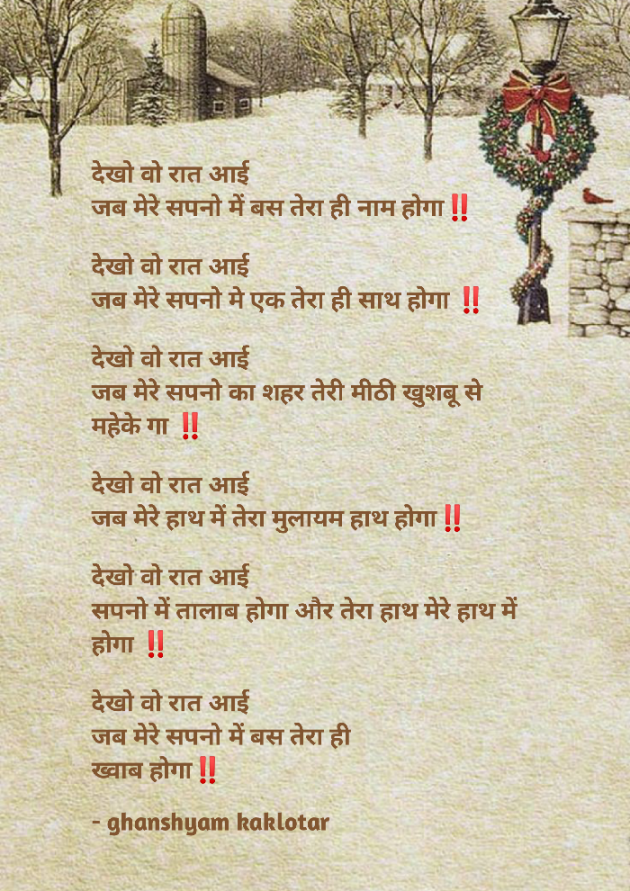 देखो वो रात आई
जब मेरे सपनो में बस तेरा ही नाम होगा‼️
देखो वो रात आई
जब मेरे सपनो मे एक तेरा ही साथ होगा ‼️
देखो वो रात आई
जब मेरे सपनो का शहर तेरी मीठी खुशबू से
महेके गा ‼️
देखो वो रात आई
जब मेरे हाथ में तेरा मुलायम हाथ होगा‼️
देखो वो रात आई
सपनो में तालाब होगा और तेरा हाथ मेरे हाथ में
होगा ‼️
देखो वो रात आई
जब मेरे सपनो में बस तेरा ही
ख्वाब होगा‼️
- ghanshyam kaklotar